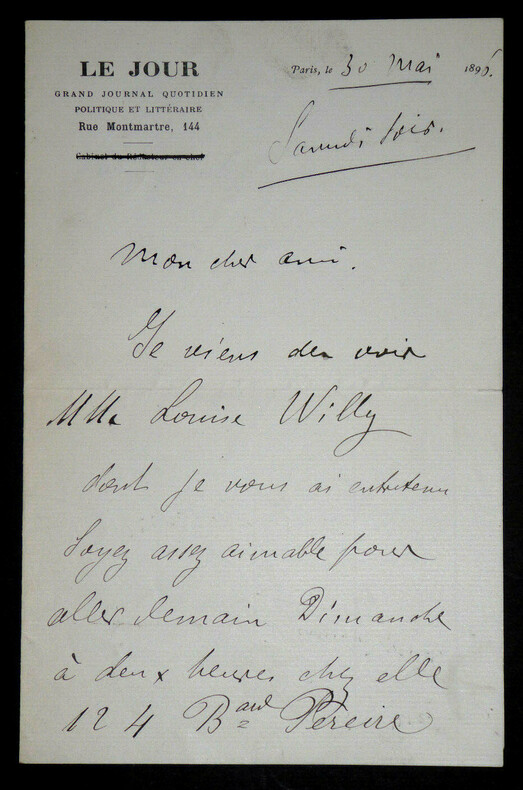 LE JOUR
GRAND JOURNAL QUOTIDIEN
POLITIQUE ET LITTÉRAIRE
Rue Montmartre, 144
Cabinet du Rédacteur en chef
Paris, le 30 Mai 1896.
Samedi soir.
Mon cher ami.
Je viens de voir
Mlle Louise Willy
dont je vous ai entretenu
Soyez assez aimable pour
aller demain Dimanche
à deux heures chez elle
124 Bard Péreire